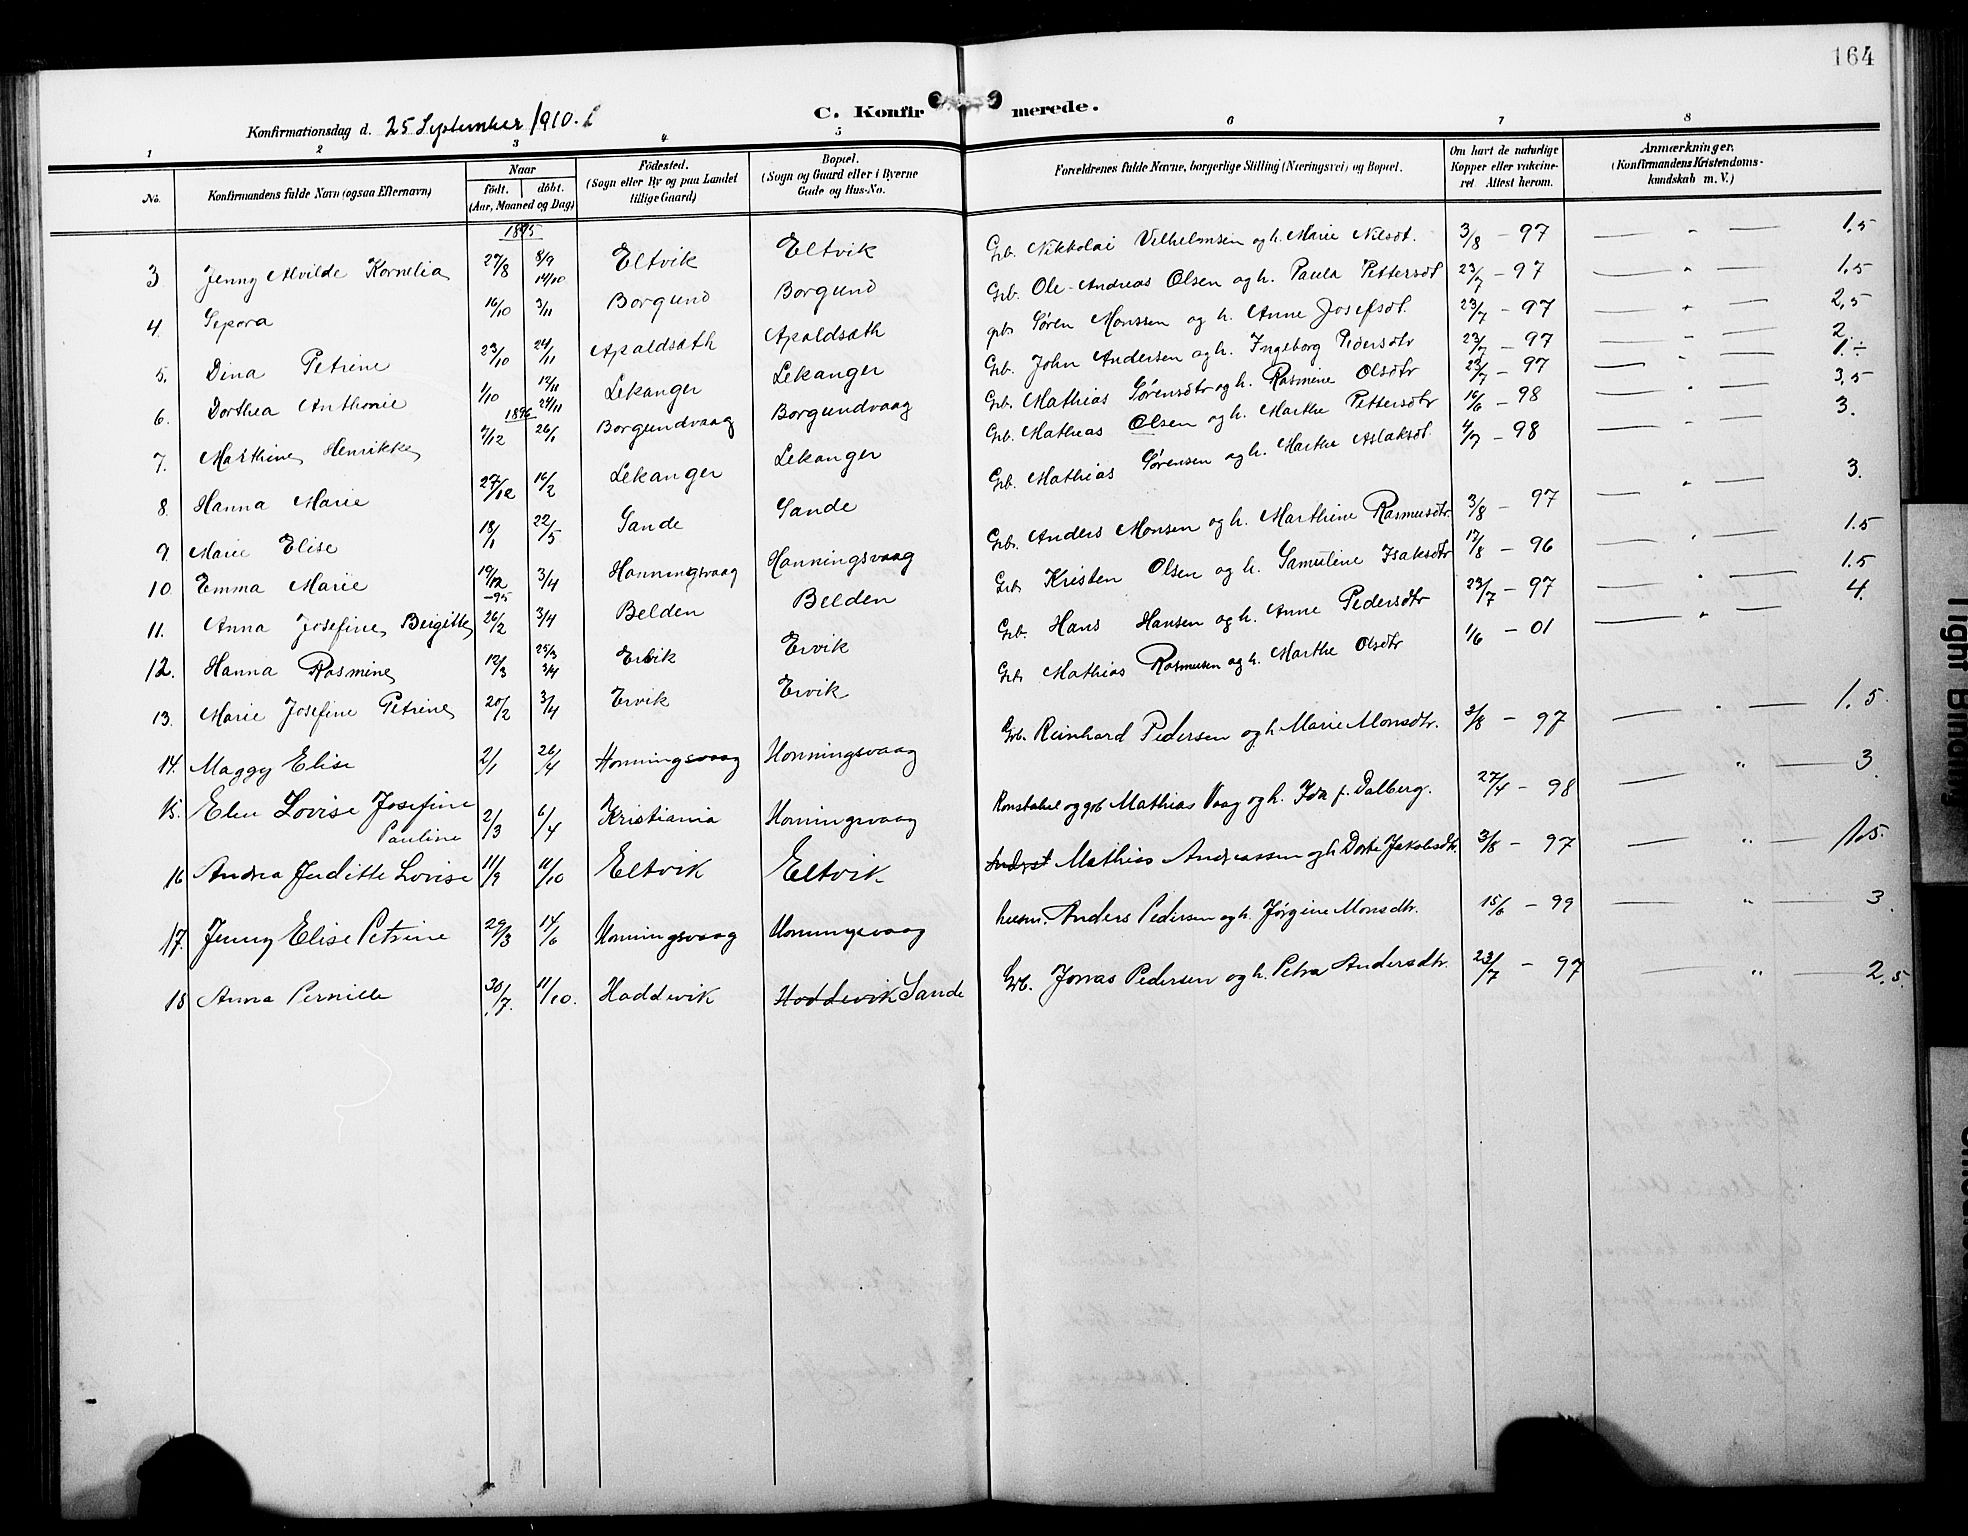 164
C. Konfirmerede.
Konfirmationsdag d. 25 September 1910.
1 2 3 4 5 6 7 8
No. Konfirmandens fulde Navn (ogsaa Efternavn) Naar født. døbt. (Aar, Maaned og Dag) Födested. (Sogn eller By og paa Landet tillige Gaard) Bopæl. (Sogn og Gaard eller i Byerne Gade og Hus-No. Forældrenes fulde Navne, borgerlige Stilling (Næringsvei) og Bopæl. Om havt de naturlige Kopper eller vakcineret Attest herom. Anmærkninger, (Konfirmandens Kristendomskundskab m. V.)
1895
3 Jenny Alvilde Kornelia 27/8 8/9 14/10 Eltvik Eltvik Grb. Nikkolai Vilhelmsen og h. Marie Nilsdt. 3/8 – 97 — " — 1.5
4. Sepora 16/10 3/11 Borgund Borgund Grb. Ole Andreas Olsen og h. Paula Pettersdt 23/7 – 97 — " — 1.5
5. Dina Petrine 23/10 24/11 Apaldsæth Apaldsæth grb Søren Monssen og h. Anne Josefsdt. 23/7 – 97 — " — 2,5
6. Dorthea Anthonie 1/10 17/11 24/11 Lekanger Lekanger Grb. John Andersen og h. Ingeborg Pedersdtr 23/7 – 97 — " — 2.
1896
7. Marthine Henrikke 7/12 26/1 Borgundvaag Borgundvaag Grb. Mathias Sørensdtr og h. Rasmine Olsdtr 23/7 – 97 — " — 1.
8. Hanna Marie 27/12 16/2 Lekanger Lekanger Grb. Mathias Olsen og h. Marthe Pettersdtr 16/6 – 98 — " — 3,5
9 Marie Elise 18/1 22/5 Sande Sande Grb. Mathias Sørensen og h. Marthe Aslaksdt. 4/7 – 98 — " — 3.
10. Emma Marie 19/12 –95 3/4 Honningsvaag Honningsvaag Grb. Anders Monsen og h. Marthine Rasmusdtr. 3/8 – 97 — " — 3.
11. Anna Josefine Bergitte 26/2 3/4 Belden Belden Grb Kristen Olsen og h. Samuline Isaksdtr 17/8 – 96 — " — 1.5
12. Hanna Rasmine 12/3 25/3 3/4 Ervik Ervik Grb. Hans Hansen og h. Anne Pedersdtr 23/7 – 97 — " — 1.5
13. Marie Josefine Petrine 20/2 3/4 Ervik Ervik Grb Mathias Rasmusen og h. Marthe Olsdtr 1/6 – 01 — " — 4.
14. Maggy Elise 2/1 26/4 Honningsvaag Honningsvaag Grb. Reinhard Pedersen og h Marie Monsdtr. 3/8 – 97 — " — 1.5.
15. Elen Lovise Josefine Pauline 2/3 6/4 Kristiania Honningsvaag Konstabel og grb Mathias Vaag og h. Ida f. Dalberg. 27/4 – 98 — " — 3.
16 Andrea Juditte Lovise 11/9 11/10 Eltvik Eltvik Mathias Andreassen og h Dorte Jakobsdtr. 3/8 – 97 — " — 1.5.
17. Jenny Elise Petrine 29/3 14/6 Honningsvaag Honningsvaag husm. Anders Pedersen og h. Jørgine Monsdtr. 15/6 – 99 — " — 3.
18 Anna Pernille 30/7. 11/10. Hoddevik Hoddevik Sande Grb. Jonas Pedersen og h. Petra Andersdtr. 23/7 – 97 — " — 2.5.
Tight Binding